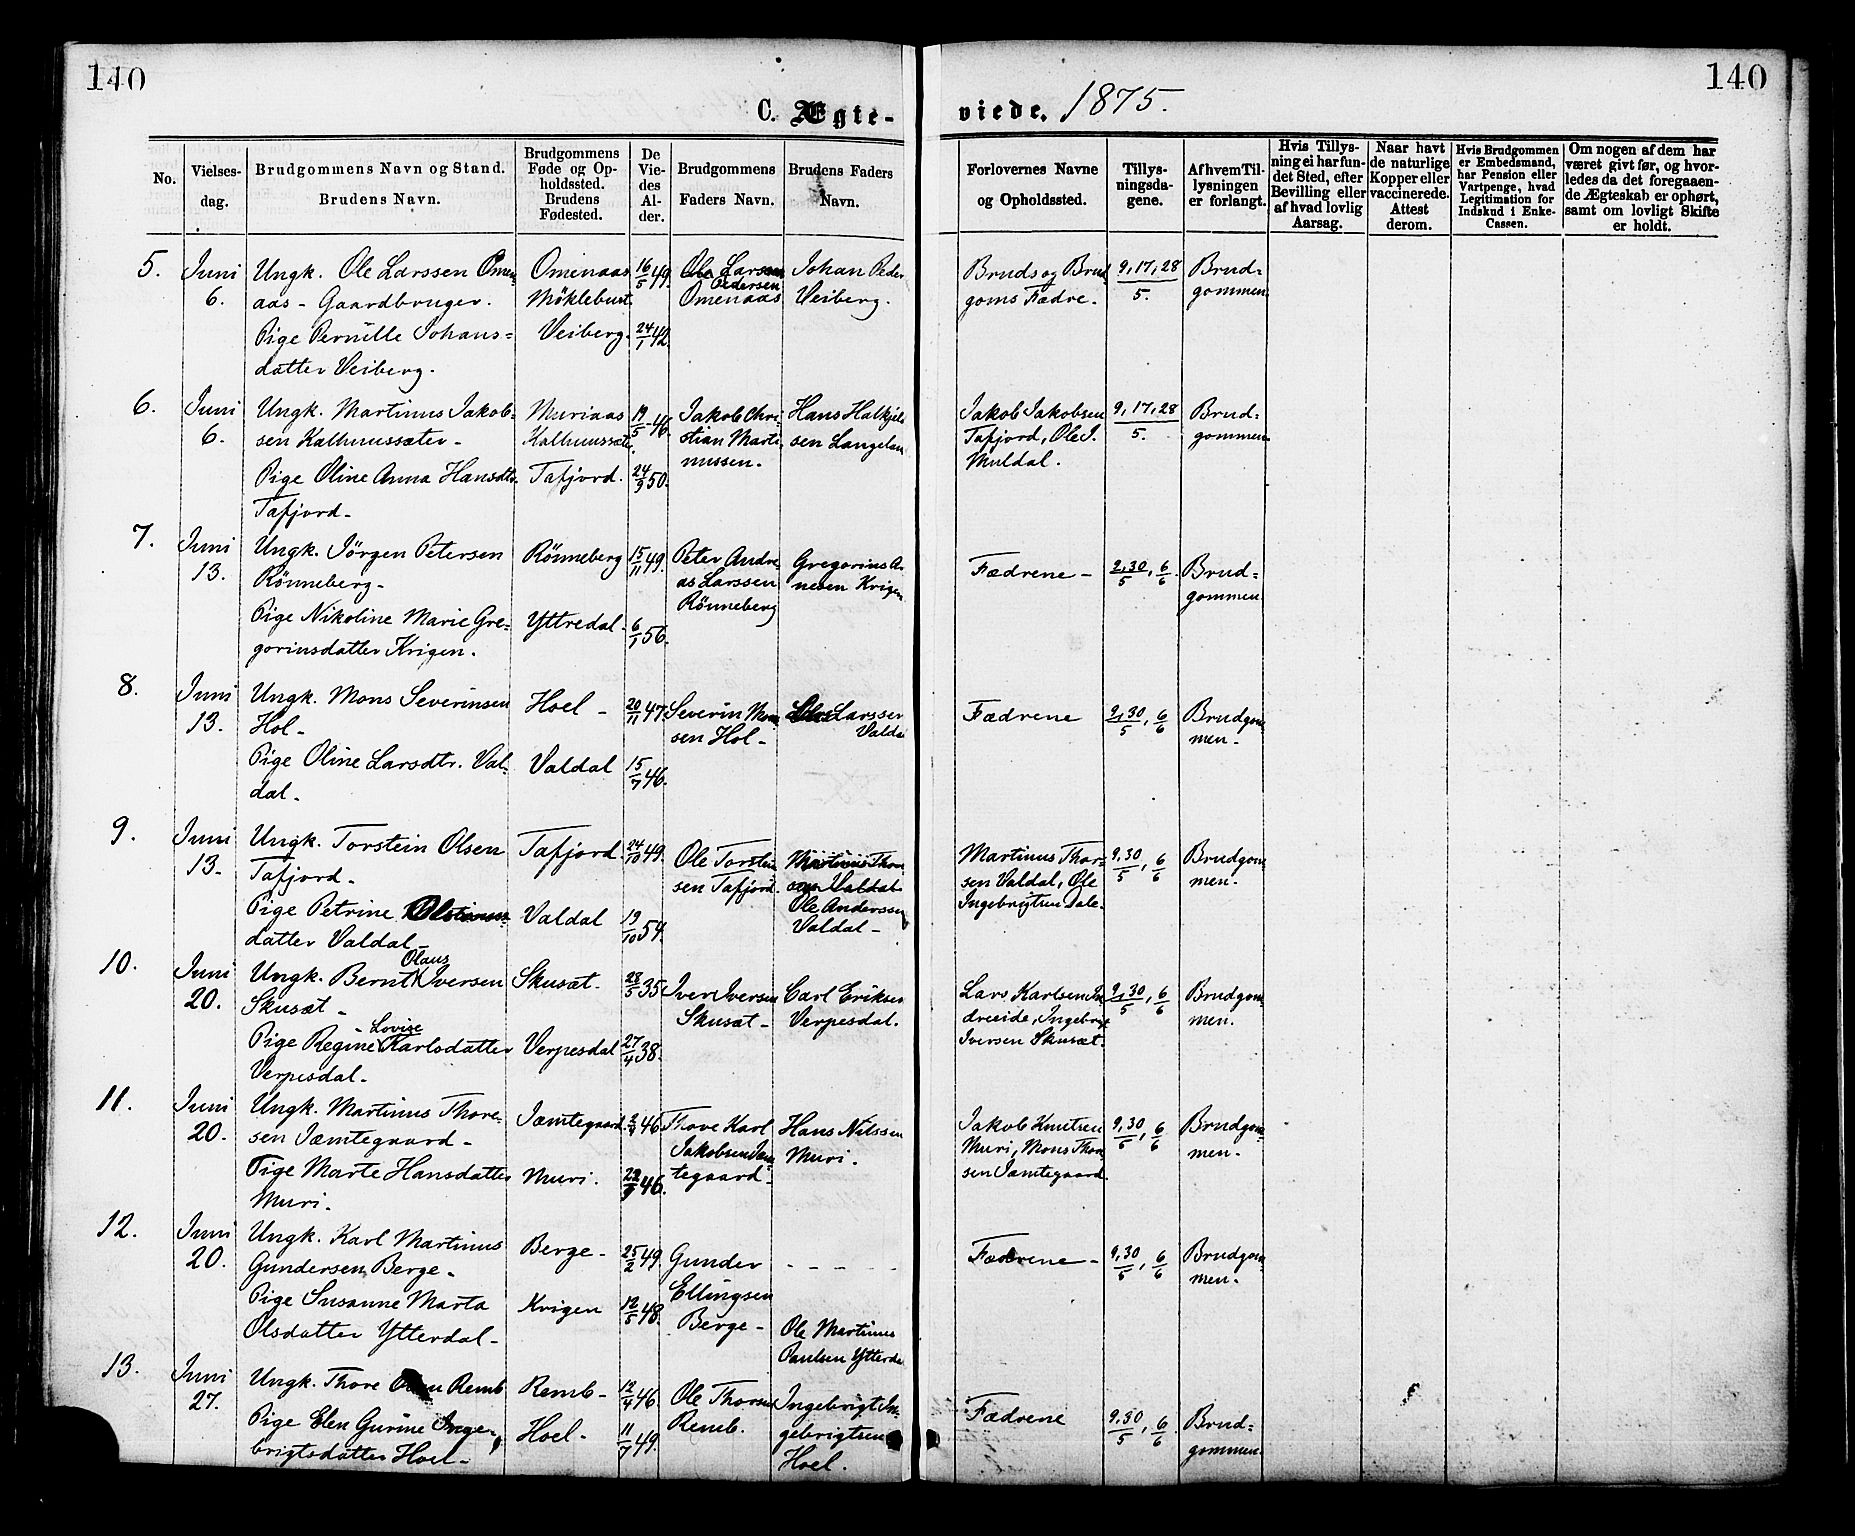 140
140
C. Ægte-
viede. 1875.
No.
Vielses-
dag.
Brudgommens Navn og Stand.
Brudens Navn.
Brudgommens
Føde og Op-
holdssted.
Brudens
Fødested.
De
Vie-
des
Al-
der.
Brudgommens
Faders Navn.
Brudens Faders
Navn.
Forlovernes Navne
og Opholdssted.
Tillys-
ningsda-
gene.
Af hvem Til-
lysningen
er forlangt.
Hvis Tillys-
ning ei har fun-
det Sted, efter
Bevilling eller
af hvad lovlig
Aarsag.
Naar havt
de naturlige
Kopper eller
vaccinerede.
Attest
derom.
Hvis Brudgommen
er Embedsmand,
har Pension eller
Vartpenge, hvad
Legitimation for
Indskud i Enke-
Cassen.
Om nogen af dem har
været givt før, og hvor-
ledes da det foregaaen-
de Ægteskab er ophørt,
samt om lovligt Skifte
er holdt.
5.
Juni
6.
Ungk. Ole Larssen Omen-
aas - Gaardbruger.
Pige Pernille Johans=
datter Veiberg.
Omenaas
Møklebust
Veiberg.
16/5 49.
24/1 42.
Ole Larssen
Pedersen
Omenaas
Johan Peder
Veiberg.
Bruds og Brud
goms Fædre.
9,17,28
5.
Brud=
gommen
6.
Juni
6.
Ungk. Martinus Jakob=
sen Kalhussæter -
Pige Oline Anna Hansdtr.
Tafjord -
Muriaas
Tafjord.
19/5 46.
24/9 50.
Jakob Chri-
stian Marti
nussen.
Hans
sen Langeland
Jakob Jakobsen
Tafjord, Ole J.
Muldal.
9,17,28
5.
Brud=
gommen
7.
Juni
13.
Ungk. Jörgen Petersen
Rönneberg -
Pige Nikoline Marie Gre=
goriusdatter Krigen.
Rönneberg
Yttredal -
15/11 49.
6/1 56.
Peter Andre-
as Larssen
Rönneberg
Gregorius Ar
nesen Krigen
Fædrene -
9,30/5, 6/6
Brud=
gommen
8.
Juni
13.
Ungk. Mons Severinsen
Hol -
Pige Oline Larsdtr. Val-
dal -
Hoel -
Valdal
20/11 47.
15/7 46.
Severin Mon
sen Hol -
Larssen
Valdal
Fædrene
9,30/5, 6/6
Brudgom
men -
9.
Juni
13.
Ungk. Torstein Olsen
Tafjord -
Pige Petrine
datter Valdal -
Tafjord.
Valdal
24/10 49.
19/10 54.
Ole Torstein
sen Tafjord.
Martinus Thor
sen Valdal
Ole Anderssen
Valdal -
Martinus Thor-
sen Valdal, Ole
Ingebrigtsen Dale.
9,30/5, 6/6
Brudgom
men.
10.
Juni
20.
Olaus
Ungk. Bernt Iversen
Skusæt -
Lovise
Pige Regine Karlsdatter
Verpesdal -
Skusæt.
Verpesdal
28/5 35
27/4 38.
Iver Iversen
Skusæt -
Carl Eriksen
Verpesdal.
Lars Karlsen
Ingebrigt
Iversen Skusæt.
9,30/5, 6/6
Brudgom
men.
11.
Juni
20.
Ungk. Martinus Thore-
sen Jæmtegaard -
Pige Marte Hansdatter
Muri.
Jæmtegaard.
Muri.
46
46.
Thore Karl
Jakobsen Jæm
tegaard -
Hans Nilssen
Muri.
Jakob Knutsen
Muri, Mons Thor
sen Jæmtegaard.
9,30/5, 6/6
Brudgom
men -
12.
Juni
20.
Ungk. Karl Martinus
Gundersen Berge -
Pige Susanne Marta
Olsdatter Ytterdal -
Berge -
Krigen
25/2 49.
12/5 48.
Gunder
Ellingsen
Berge -
- - - -
Ole Martinus
Paulsen Ytterda
Fædrene -
9,30/5, 6/6
Brudgom
men.
13.
Juni
27.
Ungk. Thore Olsen Remb
Pige Elen Gurine Inge-
brigtsdatter Hoel -
Remb -
Hoel -
12/4 46.
11/7 49.
Ole Thorsen
Remb.
Ingebrigt In-
gebrigtsen
Hoel.
Fædrene
9,30/5, 6/6
Brud=
gommen